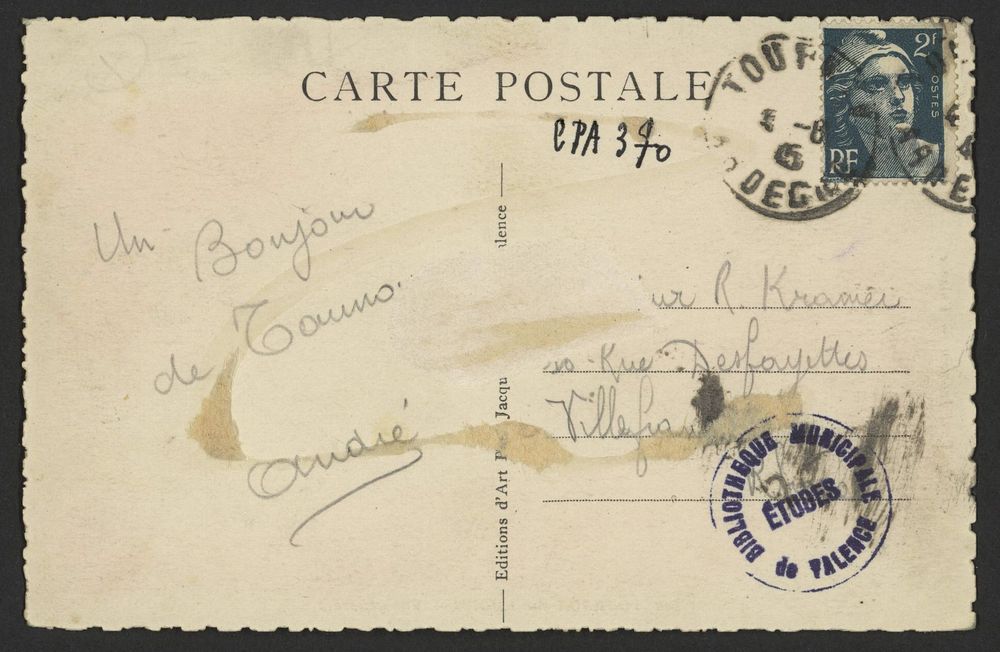 CARTE POSTALE
CPA 370
2f
POSTES
RF
TOUR
-8
45
Un Bonjour
de
André
Editions d'Art
Jacqu
lence
ur R. Kramer
Rue Desfayettes
Villefra
BIBLIOTHEQUE MUNICIPALE
ÉTUDES
de VALENCE